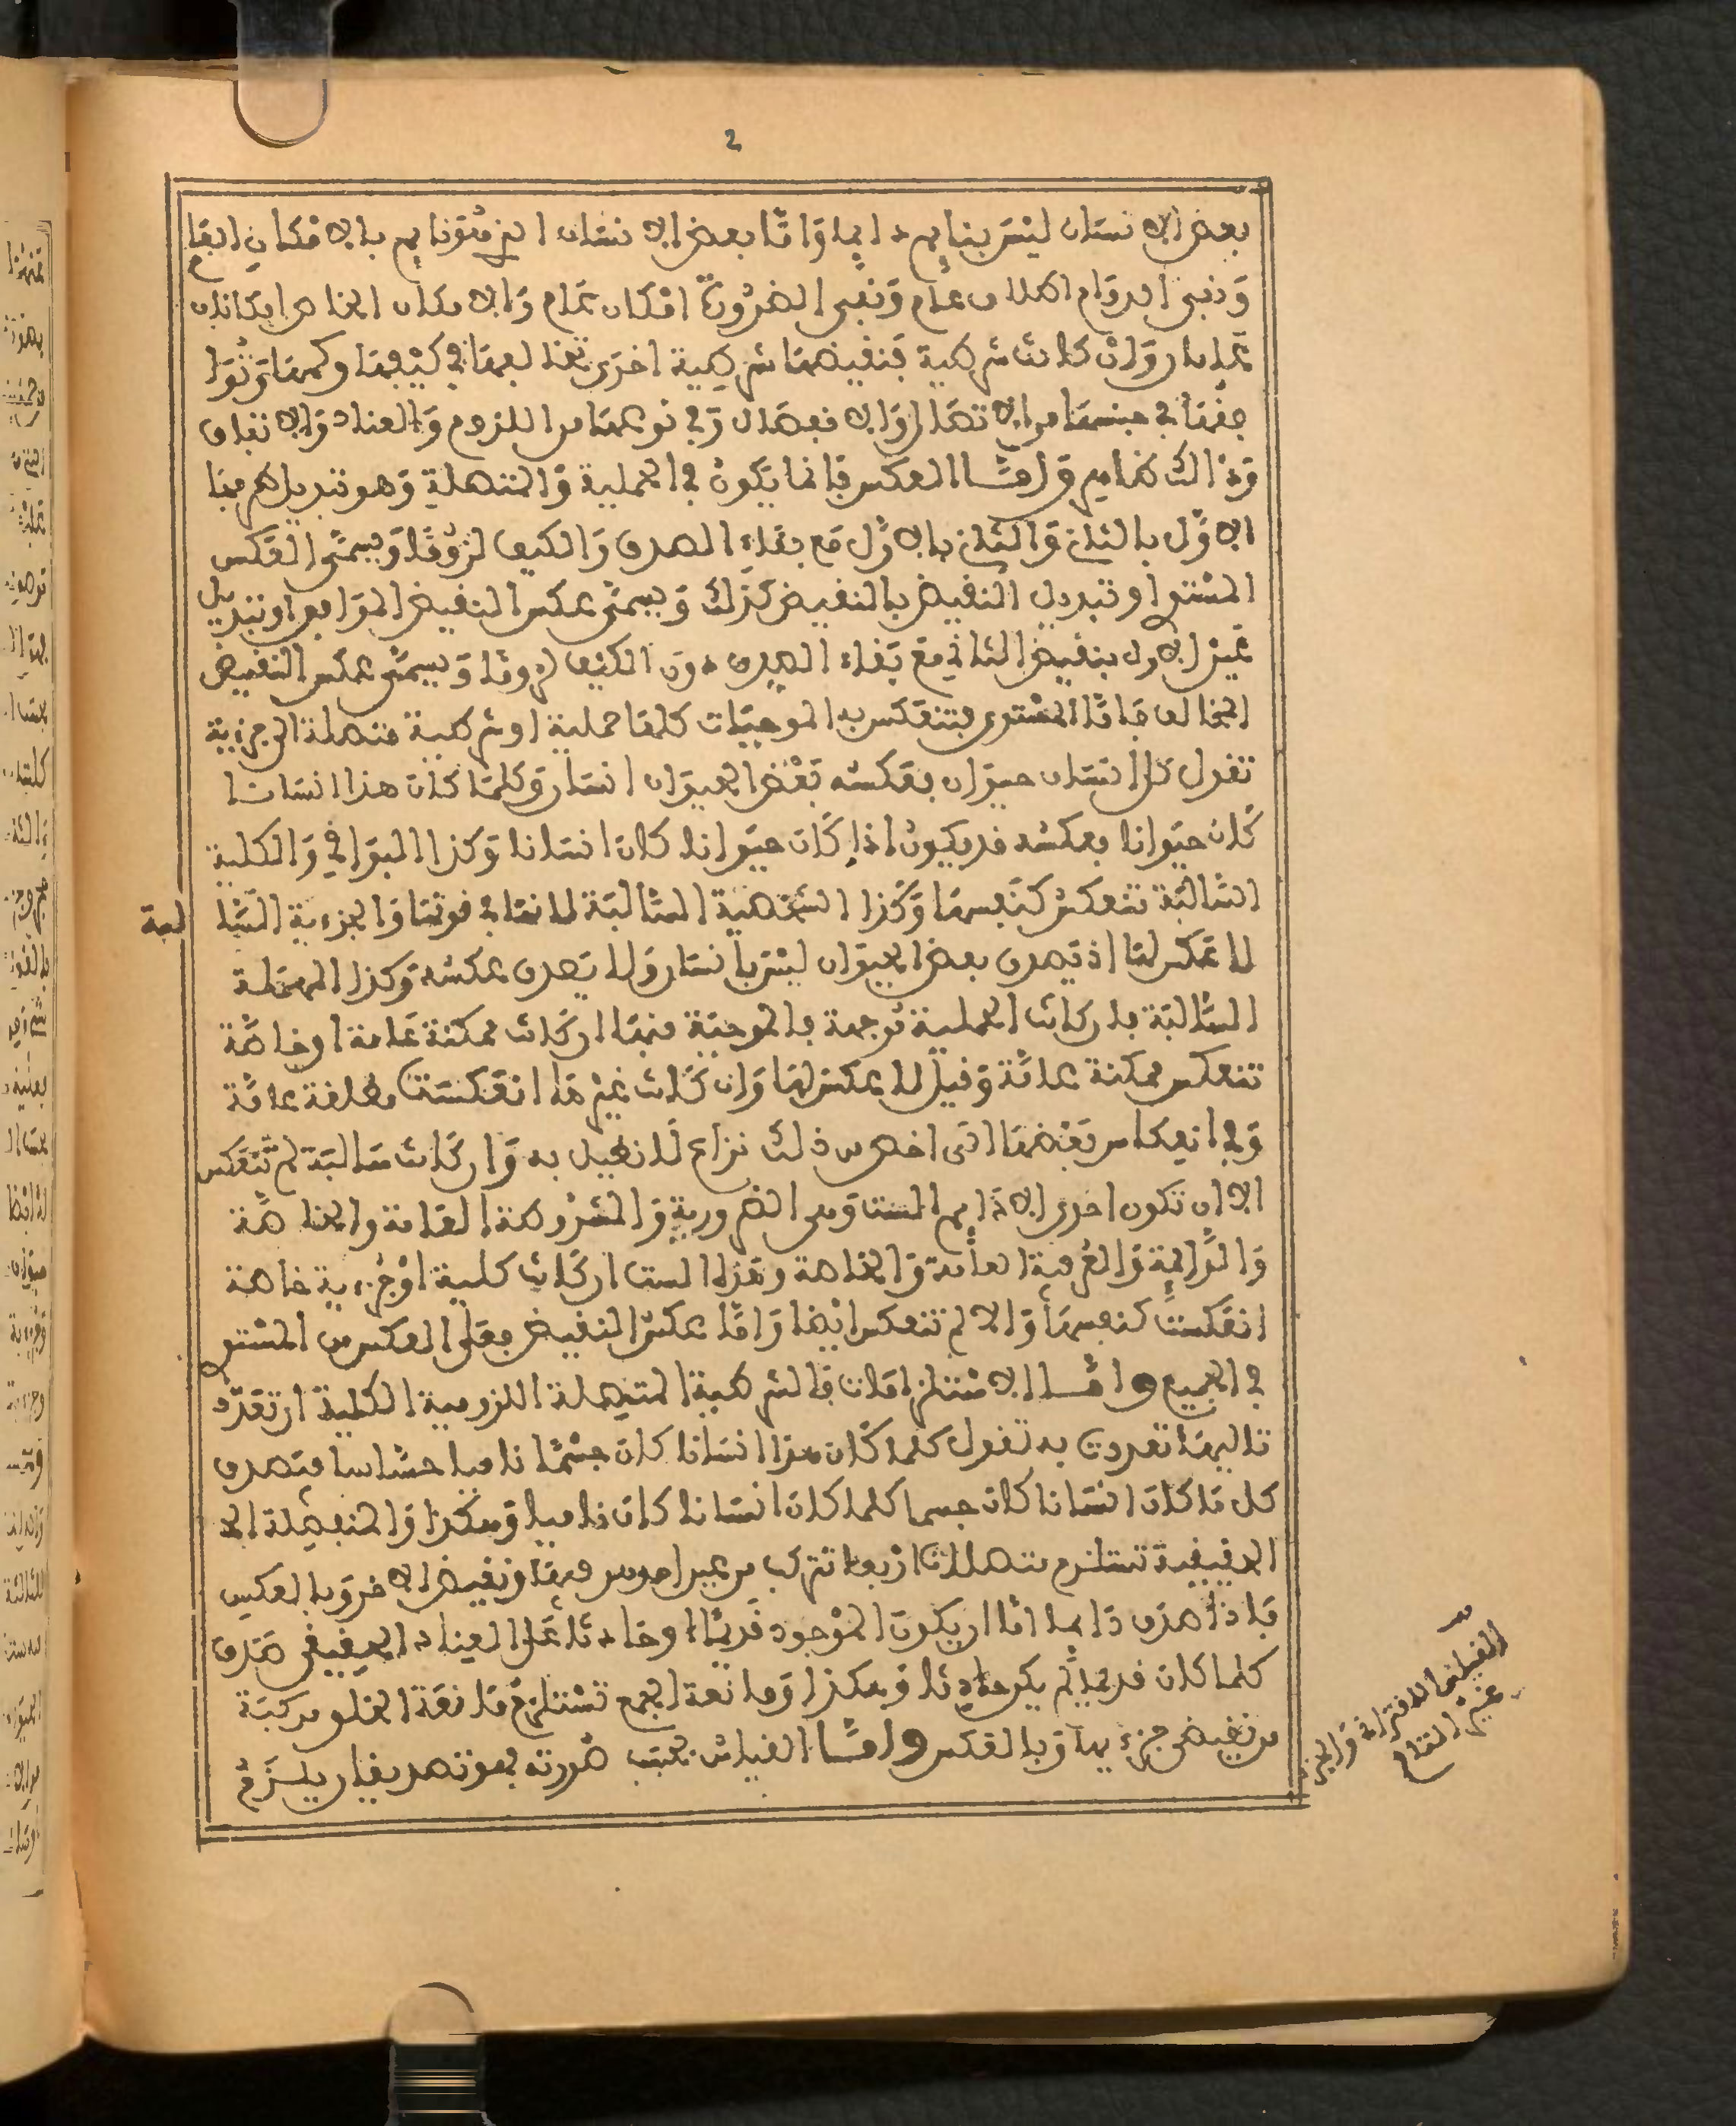 2
بعض الانسان ليس بنايم دايما واما بعض الانسان بنايم بالامكان العا
ونفي الدوام اطلاق عام ونفي الضرورة امكان عام والامكان الخاص امكانان
عامان وان كانت شرطية فنقيضها شرطية اخرى تخالفها في كيفها وكمها وتوا
فقها في جنسها من الاتصال والانفصال وفي نوعها من اللزوم والعناد والاتفاق
وذالك ظاهر وامــا العكس فانما يكون في الحملية والمتصلة وهو تبديل طرفيها
الاول بالثان والثان بالاول مع بقاء الصدق والكيف لزوما ويسمى العكس
المستو او تبديل النقيض بالنقيض كذلك ويسمى عكس النقيض الموافق او تبديل
عين الاول بنقيض الثاني مع بقاء الصدق دون الكيف لزوما ويسمى عكس النقيض
المخالف فاما المستوى فتنعكس به الموجبات كلها حملية او شرطية متصلة الى جزءية
تقول كل انسان حيوان فعكسه بعض الحيوان انسان وكلما كان هذا انسانا
كان حيوانا فعكسه قد يكون اذا كان حيوانا كان انسانا وكذا البواقي والكلية
السالبة تنعكس كنفسها وكذا الشخصية السالبة لانها في قوتها والجزءية السا
لبة
لا عكس لها اذ يصدق بعض الحيوان ليس بانسان ولا يصدق عكسه وكذا المهملة
السالبة فان كانت الحملية موجهة فالموجبة منها ان كانت ممكنة عامة او خاصة
تنعكس ممكنة عامة وقيل لا عكس لها وان كانت غيرها انعكست مطلقة عامة
وفي انعكاس بعضها الى اخص من ذلك نزاع لا نطيل به وان كانت سالبة لم تنعكس
الا ان تكون احدى الدوايم الست وهي الضرورية والمشروطة العامة والخاصة
والدايمة والعرفية العامة والخاصة وهذه الست ان كانت كلية او جزءية خاصة
انعكست كنفسها والا لم تنعكس ايضا واما عكس النقيض فعلى العكس من المستو
في الجميع وامــا الاستلزامات فالشرطية المتصلة اللزومية الكلية ان تعدد
تاليها تعددت به تقول كلما كان هذا انسانا كان جسما ناميا حساسا فتصدق
كل ما كان انسانا كان جسما كلما كان انسانا كان ناميا وهكذا والمنفصلة الـ
الحقيقية تستلزم متصلات اربعا تتركب من عين احد طرفيها ونقيض الاخر وبالعكس
فاذا صدق دايما اما ان يكون الموجود قديما او حادثا على العناد الحقيقي صدق
كلما كان قديما لم يكن حادثا وهكذا ومانعة الجمع تستلزم مانعة الخلو مركبة
من نقيض جزءيها وبالعكس وامــا القياس بحسب صورته فهو تصديقان يلزم
القياس الاقتراني والجزء
غير التام